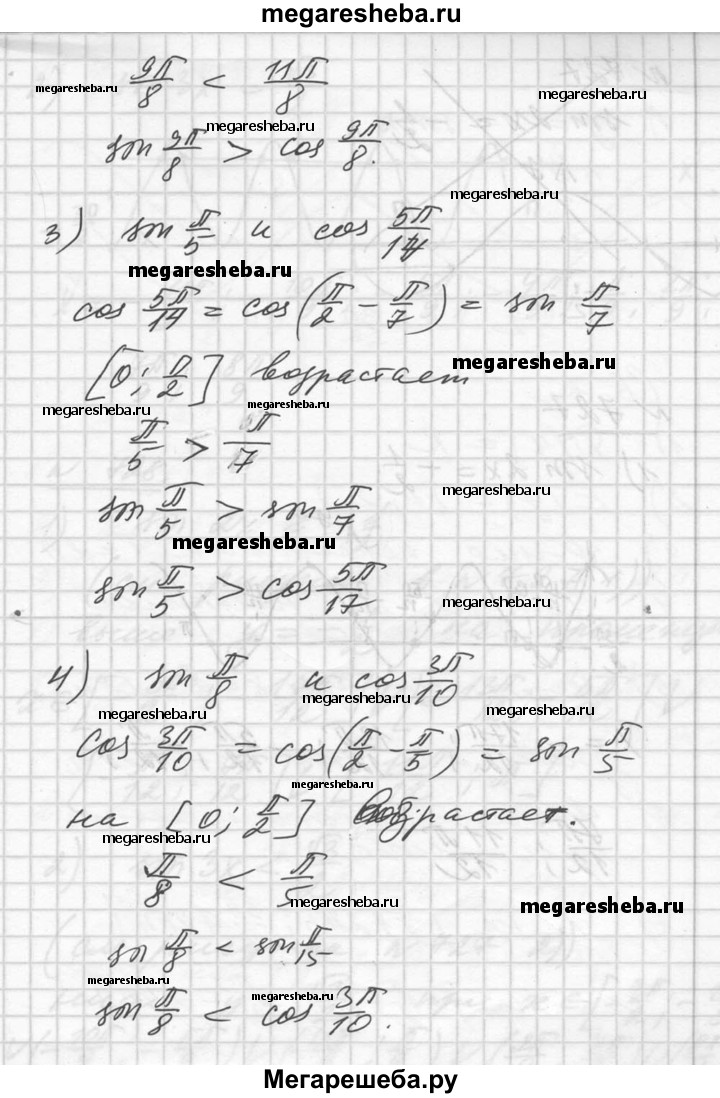 megaresheba.ru
9π/8 < 11π/8
megaresheba.ru megaresheba.ru
megaresheba.ru
sin 9π/8 > cos 9π/8.
megaresheba.ru
3) sin π/5 и cos 5π/14
megaresheba.ru
cos 5π/14 = cos(π/2 - π/7) = sin π/7
[0; π/2] возрастает
megaresheba.ru
megaresheba.ru megaresheba.ru
π/5 > π/7
megaresheba.ru
sin π/5 > sin π/7
megaresheba.ru
sin π/5 > cos 5π/17
megaresheba.ru
4) sin π/8 и cos 3π/10
megaresheba.ru megaresheba.ru
cos 3π/10 = cos(π/2 - π/5) = sin π/5
megaresheba.ru
на [0; π/2] возрастает.
megaresheba.ru
π/8 < π/5
megaresheba.ru megaresheba.ru
sin π/8 < sin π/15
megaresheba.ru megaresheba.ru
sin π/8 < cos 3π/10.
megaresheba.ru
Мегарешеба.ру